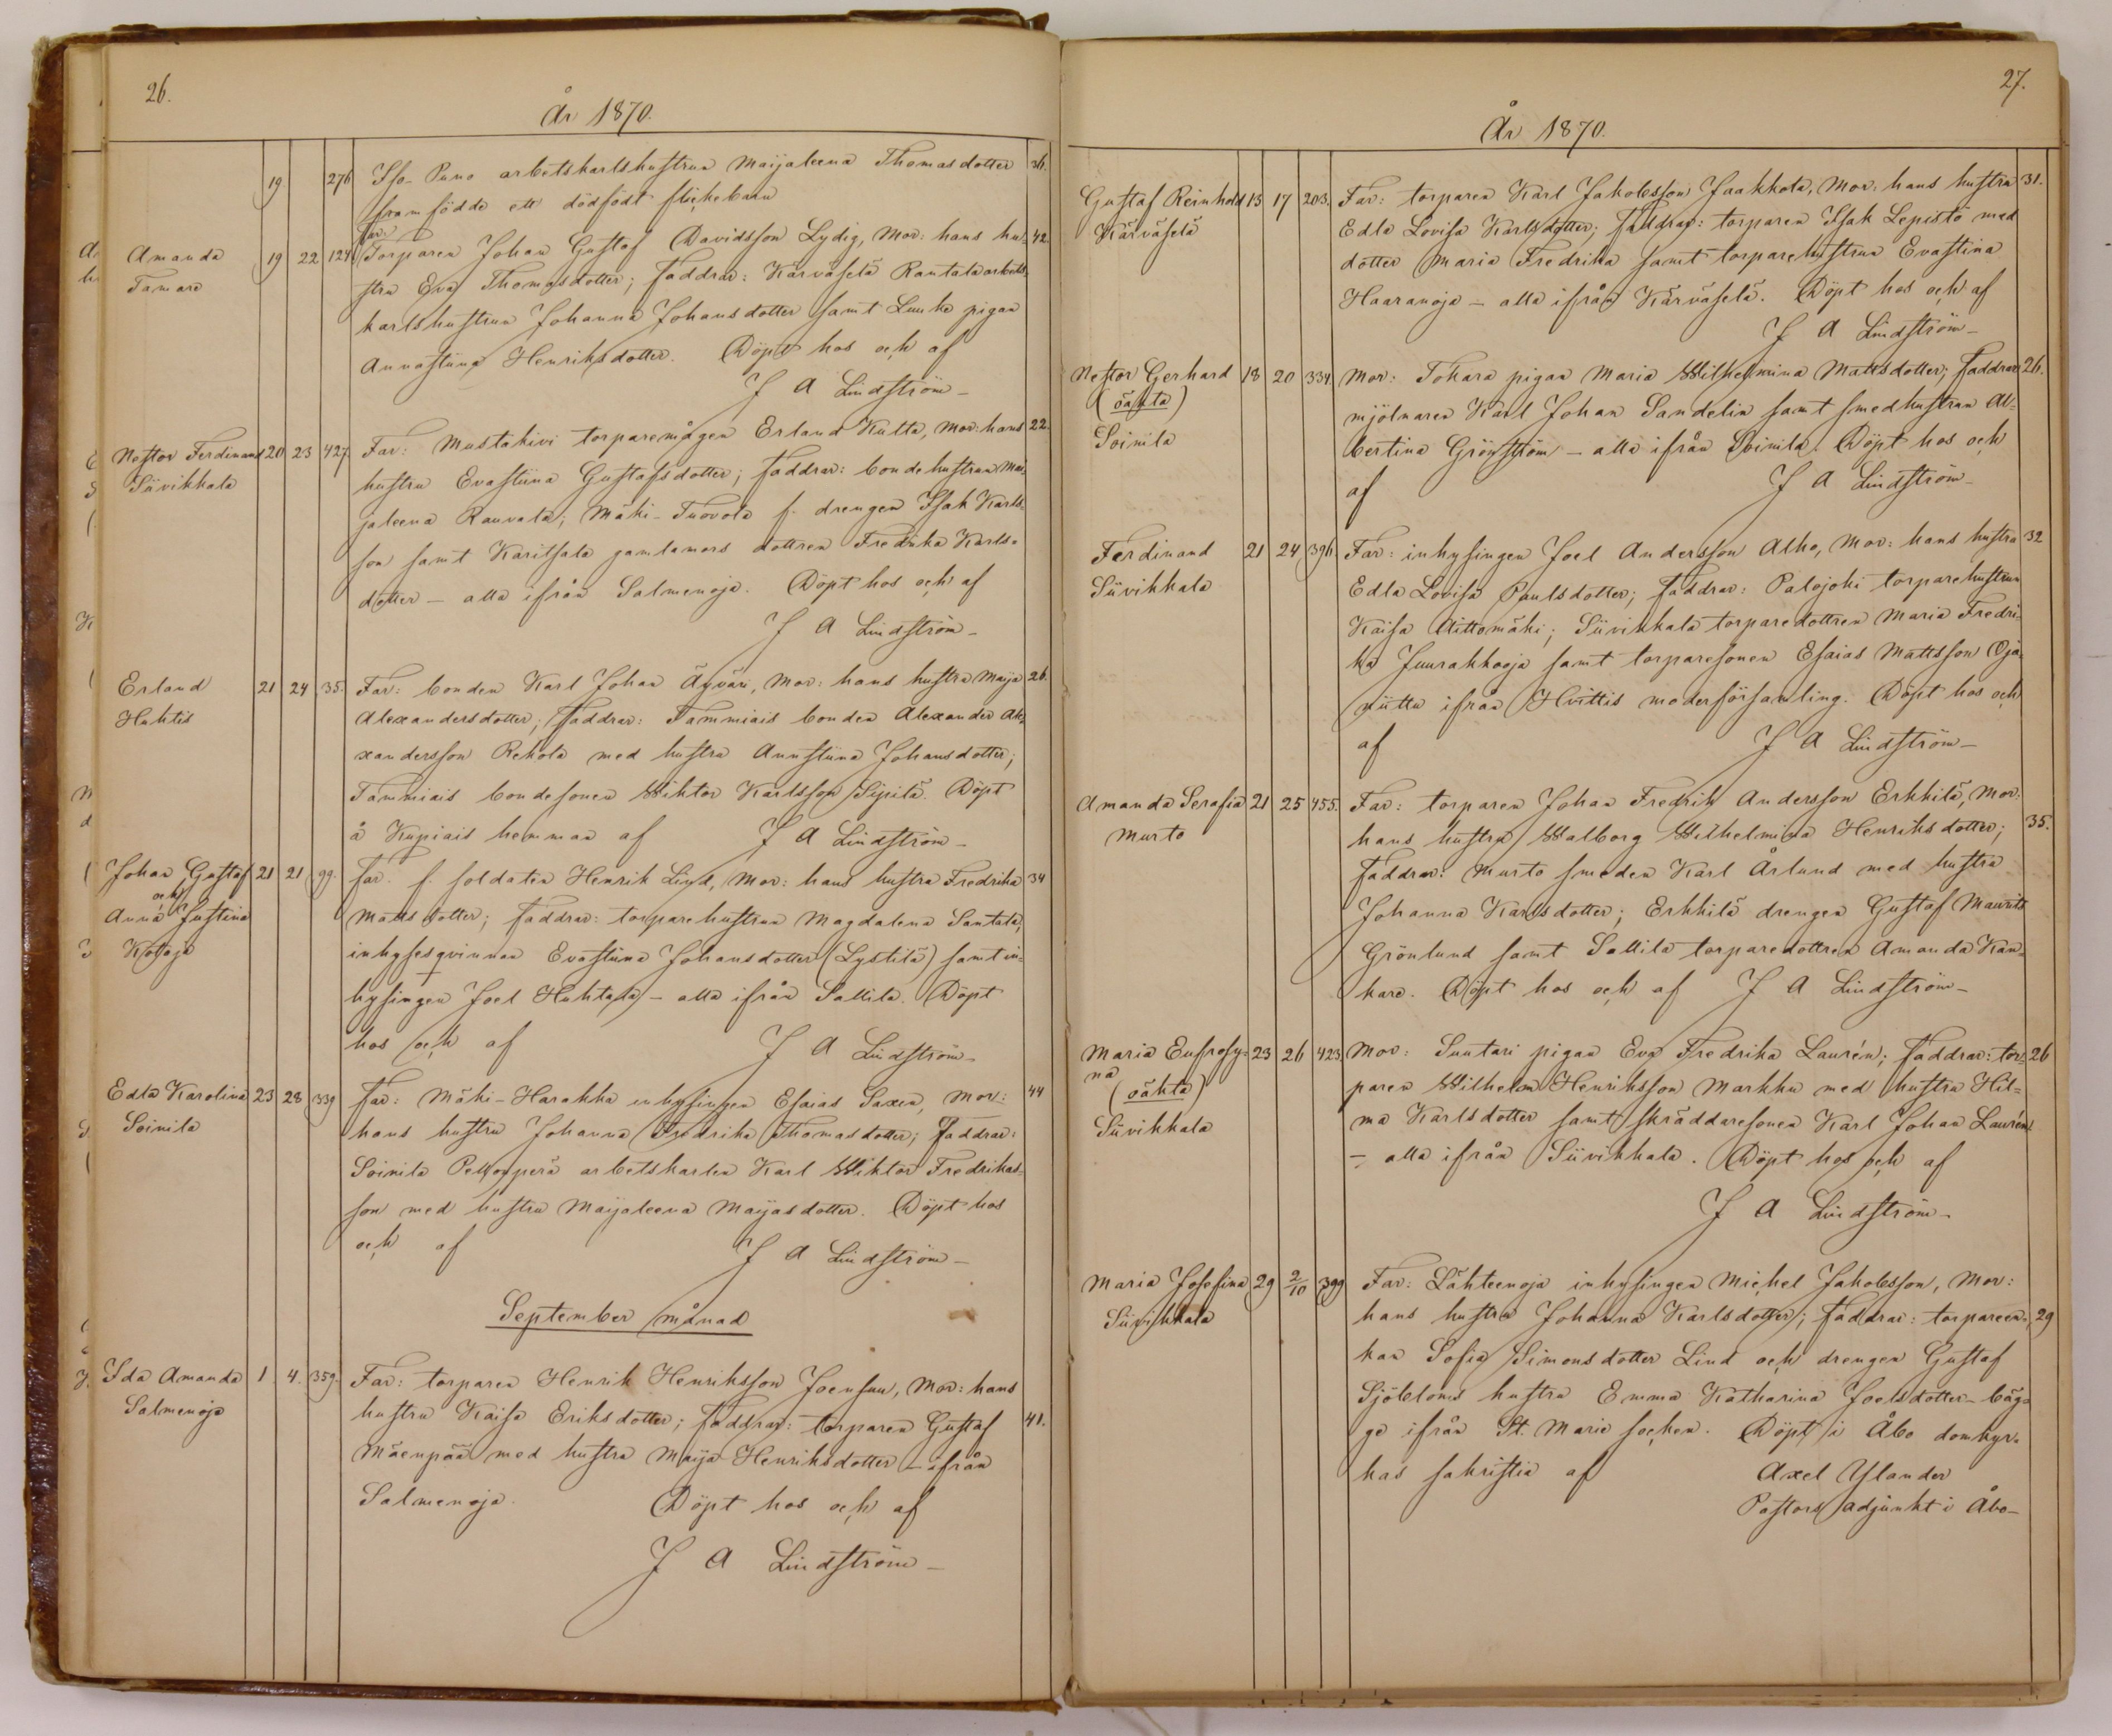 26.
År 1870.
19 276 Iso-Puno arbetskarlshustrun Maijaleena Thomasdotter 36.
framfödde ett dödfödt flickebarn
Far:
Amanda 19 22 124 Torparen Johan Gustaf Davidsson Lydig, Mor: hans hu- 42.
Tamare stru Eva Thomasdotter; faddrar: Kärväselä Rantala arbets-
karlshustrun Johanna Johansdotter samt Luuka pigan
Annastiina Henriksdotter. Döpt hos och af
J A Lindström-
Nestor Ferdinand 20 23 427 Far: Mustakivi torparemågen Erland Kulta, Mor: hans 22.
Siivikkala hustru Evastiina Gustafsdotter; faddrar: bondehustrun Mai-
jaleena Rauvala; Mäki-Tuovola f. drengen Isak Karls-
son samt Karitsala gamlamors dottren Fredrika Karls-
dotter - alla ifrån Salmenoja. Döpt hos och af
J A Lindström-
Erland 21 24 35. Far: bonden Karl Johan Äyväri, Mor: hans hustru Maija 26.
Huhtis Alexandersdotter; faddrar: Tammiais bonden Alexander Ale-
xandersson Rekola med hustru Annstiina Johansdotter;
Tammiais bondesonen Wiktor Karlsson Sipilä. Döpt
å Kupiais hemman af J A Lindström-
Johan Gustaf 21 21 99. Far: f. soldaten Henrik Lind, Mor: hans hustru Fredrika 34
och
Anna Justina Mattsdotter; faddrar: torparehustrun Magdalena Santala,
Kotoja inhysesqvinnan Evastiina Johansdotter (Lystilä) samt in-
hysingen Joel Huhtala - alla ifrån Sallila. Döpt
hos och af J A Lindström-
Edla Karolina 23 28 339 Far: Mäki-Harakka inhysingen Esaias Saxen, Mor: 44
Soinila hans hustru Johanna Fredrika Thomasdotter; faddrar:
Soinila Peltorperä arbetskarlen Karl Wiktor Fredrikas-
son med hustru Maijaleena Maijasdotter. Döpt hos
och af J A Lindström-
September månad
Ida Amanda 1 4. 359. Far: torparen Henrik Henriksson Joensuu, Mor: hans
Salmenoja hustru Kaisa Eriksdotter; faddrar: torparen Gustaf 41.
Mäenpää med hustru Maija Henriksdotter - ifrån
Salmenoja. Döpt hos och af
J A Lindström-
27.
År 1870.
Gustaf Reinhold 15 17 203. Far: torparen Karl Jakobsson Jaakkola, Mor: hans hustru 31.
Kärväselä Edla Lovisa Karlsdotter; faddrar: torparen Isak Lepistö med
dotter Maria Fredrika samt torparehustrun Evastina
Haaranoja - alla ifrån Kärväselä. Döpt hos och af
J A Lindström-
Nestor Gerhard 18 20 334. Mor: Tokara pigan Maria Wilhelmina Mattsdotter; faddrar 26.
(oäkta) mjölnaren Karl Johan Sandelin samt smedhustrun Al-
Soinila bertina Grönström - alla ifrån Soinila. Döpt hos och
af J A Lindström-
Ferdinand 21 24 396 Far: inhysingen Joel Andersson Alho, Mor: hans hustru 32
Siivikkala Edla Lovisa Paulsdotter; faddrar: Palojoki torparehustrun
Kaisa Aittomäki; Siivikkala torparedottren Maria Fredri-
ka Juurakkooja samt torparesonen Esaias Mattsson Oja-
niittu ifrån Hvittis moderförsamling. Döpt hos och
af J A Lindström-
Amanda Serafia 21 25 455. Far: torparen Johan Fredrik Andersson Erkkilä, Mor:
Murto hans hustru Walborg Wilhelmina Henriksdotter; 35.
faddrar: Murto smeden Karl Årlund med hustru
Johanna Karlsdotter; Erkkilä drengen Gustaf Maurits
Grönlund samt Sallila torparedottren Amanda Kan-
kare. Döpt hos och af J A Lindström-
Maria Eufrosy- 23 26 423. Mor: Suutari pigan Eva Fredrika Laurén; faddrar: tor- 26
na paren Wilhelm Henriksson Markku med hustru Hil-
(oäkta) ma Karlsdotter samt skräddaresonen Karl Johan Laurén
Siivikkala - alla ifrån Siivikkala. Döpt hos och af
J A Lindström-
Maria Josefina 29 2/10 399 Far: Lähteenoja inhysingen Michel Jakobsson, Mor:
Siivikkala hans hustru Johanna Karlsdotter; faddrar: torpareen- 29
kan Sofia Simonsdotter Lind och drengen Gustaf
Sjöbloms hustru Emma Katharina Joelsdotter - bäg-
ge ifrån St. Marie socken. Döpt i Åbo domkyr-
kas sakristia af Axel Ylander
Pastors adjunkt i Åbo-